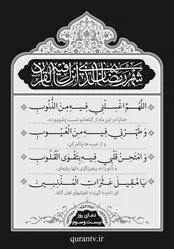 شهر رمضان الذی انزل فیه القرآن
اَللّهُمَّ اغْسِلْنی فیهِ مِنَ الذُّنُوبِ
خدایا در این ماه از گناهانم شست وشویم ده
وَ طَهِّرْنی فیهِ مِنَ الْعُیُوبِ
و از عیب ها پاکم کن
وَ امْتَحِنْ قَلْبی فیهِ بِتَقْوَی الْقُلُوبِ
یا مُقیلَ عَثَراتِ الْمُذْنِبینَ
ای نادیده گیرنده لغزشهای اهل گناه
دعای روز
بیست وسوم
www.qurantv.ir